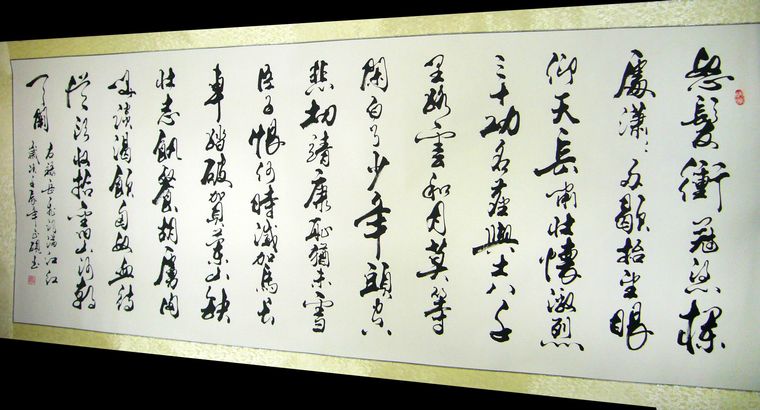 怒髮衝冠憑欄
處瀟瀟雨歇抬望眼
仰天長嘯壯懷激烈
三十功名塵與土八千
里路雲和月莫等
閑白了少年頭空
悲切靖康恥猶未雪
臣子恨何時滅駕長
車踏破賀蘭山缺
壯志飢餐胡虜肉
笑談渴飲匈奴血待
從頭收拾舊山河朝
天闕
右錄岳飛詞滿江紅
歲次壬辰年書